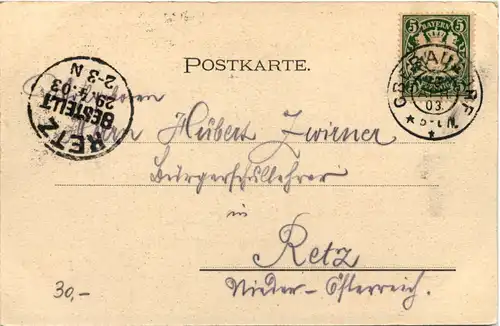 POSTKARTE.
5 BAYERN 5
03
RETZ
BESTELLT
29 4 03
2-3 N
Herrn Hubert Zwirner
Bürgerschullehrer
in
Retz
Nieder-Österreich.
30,-